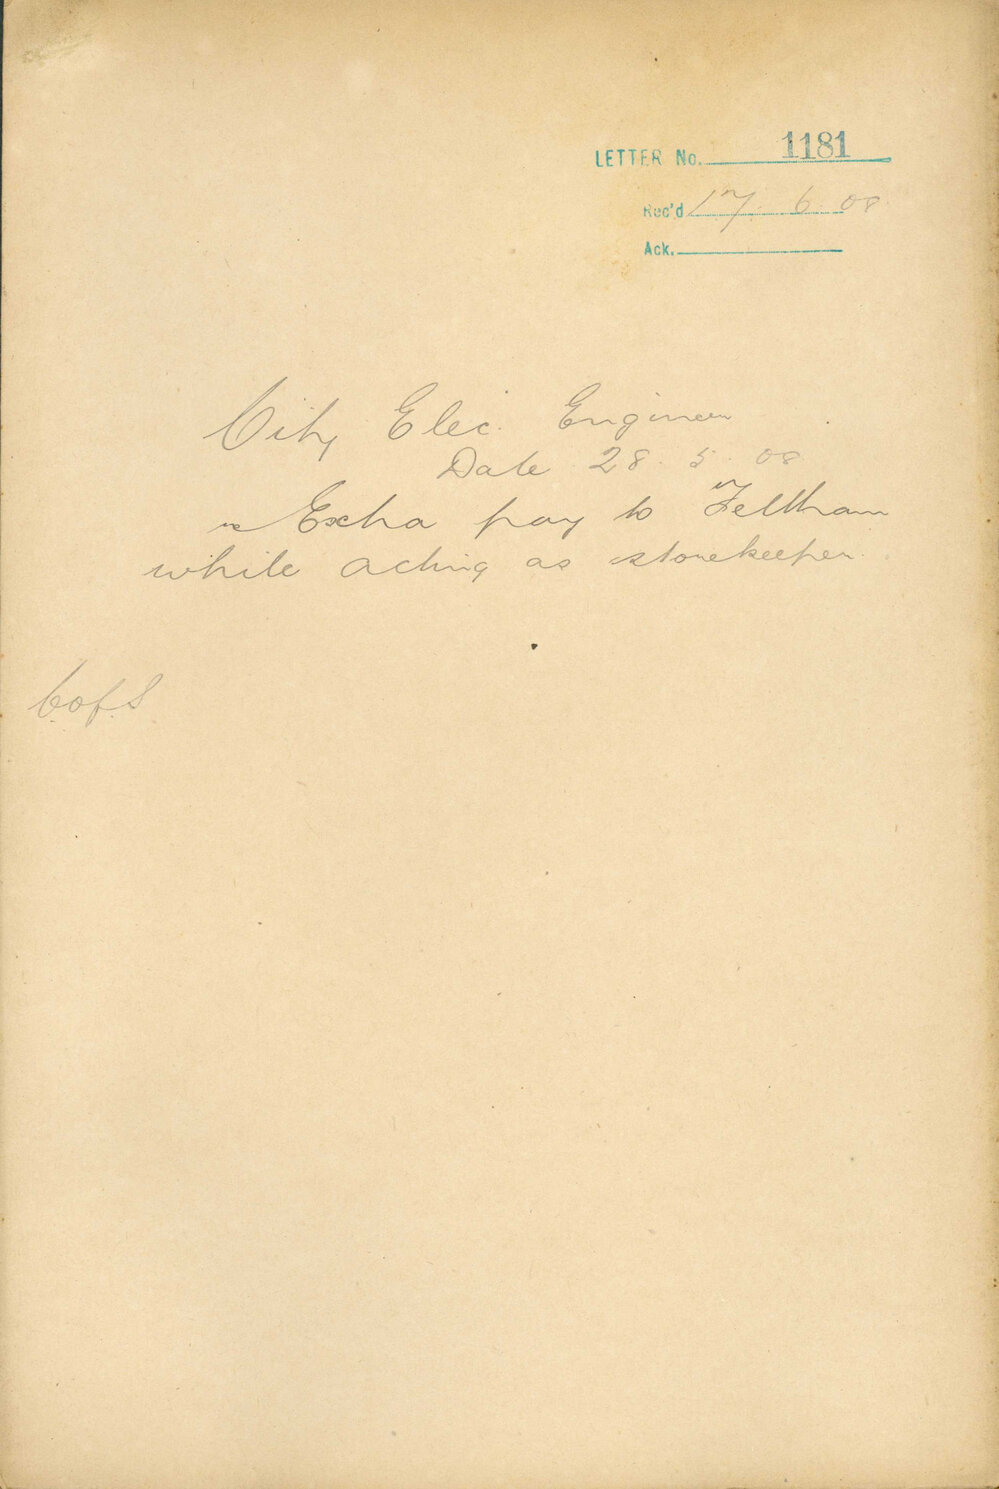 LETTER No. 1181
Rec'd 17. 6. 08
Ack.
City Elec. Engineer
Date 28. 5. 08
re Extra pay to Feltham
while acting as storekeeper.
C of S